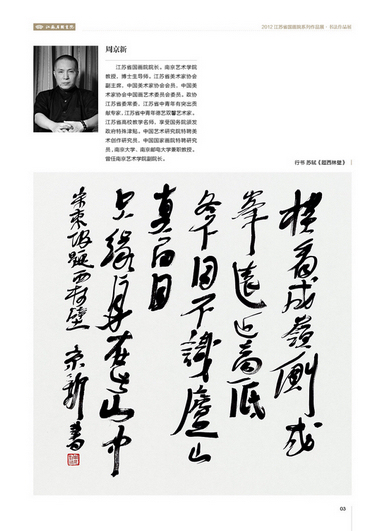 江苏省国画院
2012江苏省国画院系列作品展·书法作品展
周京新
江苏省国画院院长。南京艺术学院
教授，博士生导师。江苏省美术家协会
副主席，中国美术家协会会员，中国美
术家协会中国画艺术委员会委员，政协
江苏省委常委，江苏省中青年有突出贡
献专家，江苏省中青年德艺双馨艺术家，
江苏省高校教学名师，享受国务院颁发
政府特殊津贴，中国艺术研究院特聘美
术创作研究员，中国国家画院特聘研究
员，南京大学、南京邮电大学兼职教授。
曾任南京艺术学院副院长。
行书 苏轼《题西林壁》
橫看成嶺側成
峯遠近高低
各不同不識廬山
真面目
只緣身在此山中
宋東坡題西林壁 京新書
03